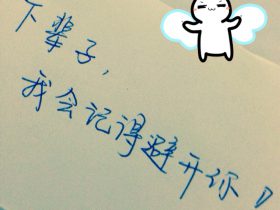 下辈子，
我会记得避开你！